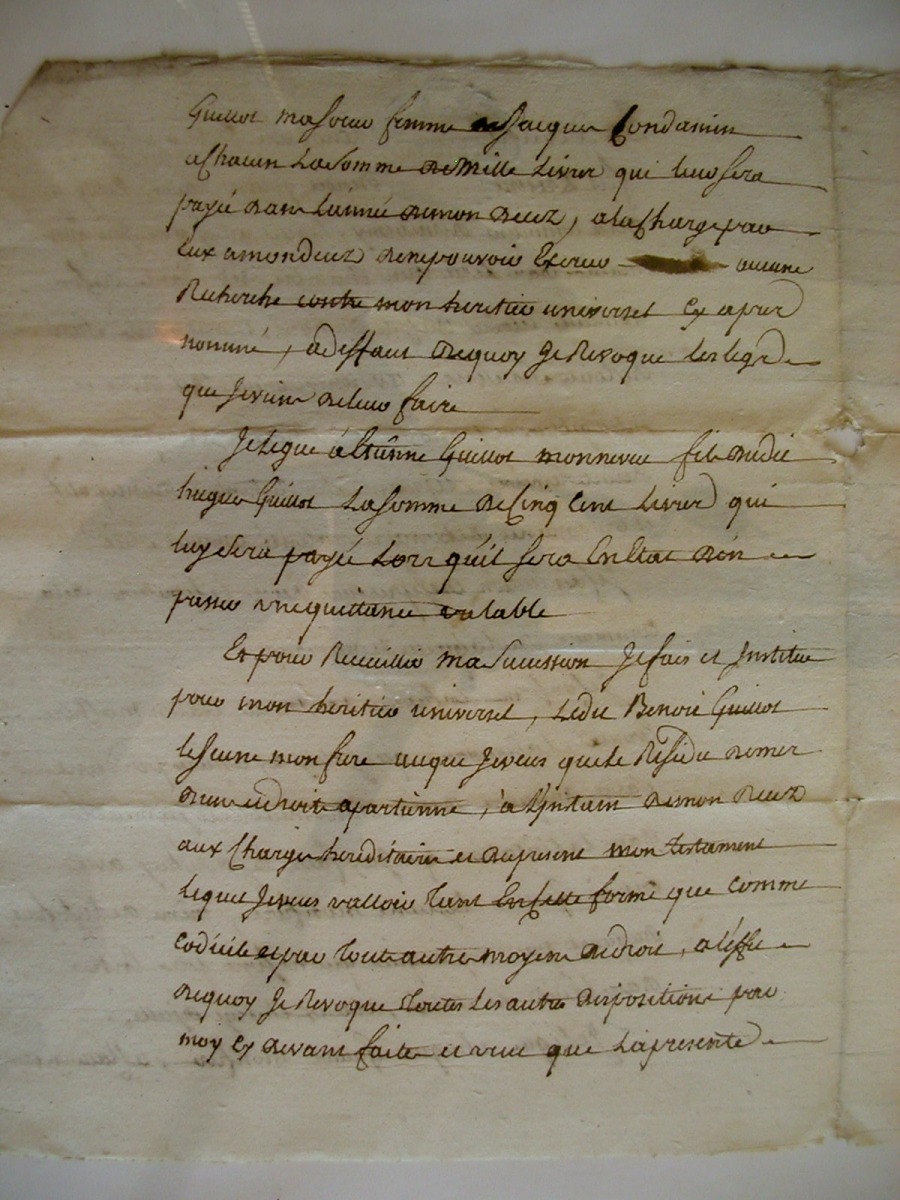 Guillot ma soeur femme de Jacques Condamin
a Chacun La Somme de Mille Livres qui leur sera
payé dans l'anné de mon decez, a la Charge par
Eux a mondeucz de ne pouvoir Exercer aucune
Recherche contre mon heritier universel Cy apres
nommé, a deffaut de quoy Je Revoque les legs
que Je viens de leur faire
Je Legue à Estienne Guillot mon neveu fils dudit
hugue Guillot La Somme de Cinq Cent Livres qui
luy sera payé Lors qu'il sera En Etat d'en
passer une quittance valable
Et pour Recueillir ma Succession Je fais et Institue
pour mon heritier universel, Ledit Benoit Guillot
le Jeune mon frere auquel Je veus que le Residu de mes
biens et droits apartienne, à L'instant de mon decez
aux Charges hereditaires et du present mon testament
lequel Je veus valloir tant En Cette forme que Comme
Codicile et par tout autre moyen de droit, a L'effet
de quoy Je Revoque toutes Les autres dispositions par
moy Cy devant faites et veux que La presente